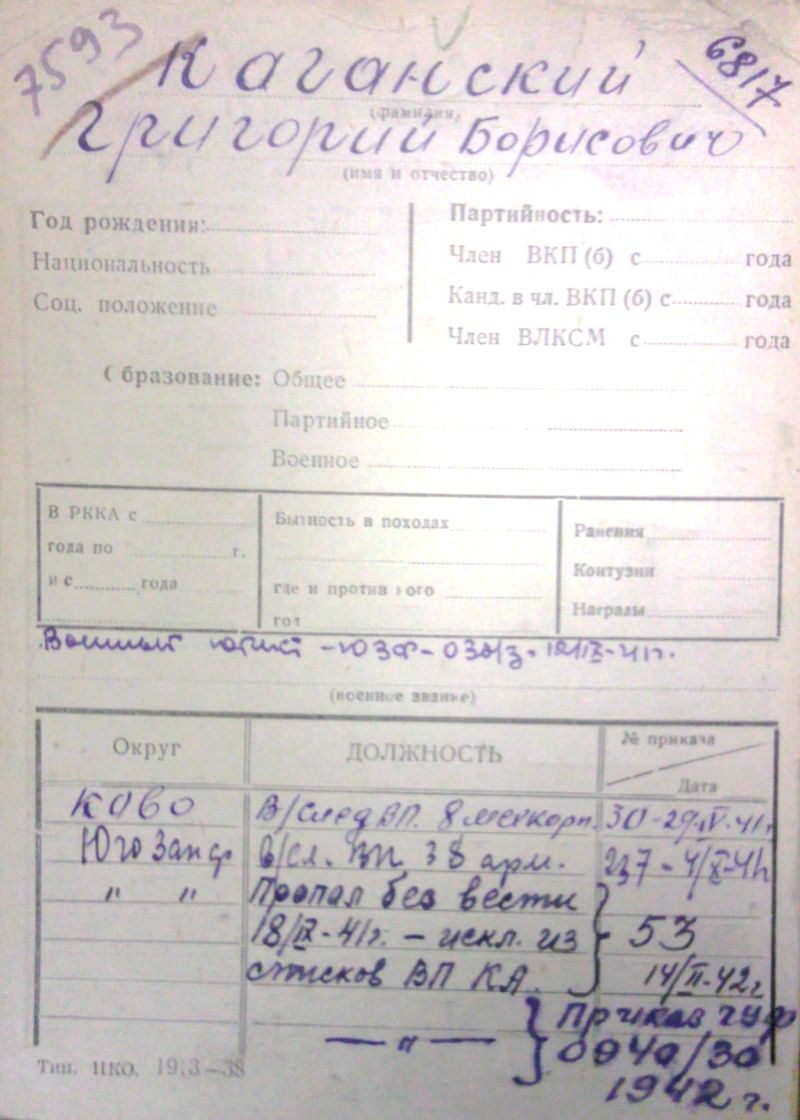 7593
6817
Каганский
(фамилия)
Григорий Борисович
(имя и отчество)
Год рождения:
Национальность
Соц. положение
Партийность:
Член ВКП (б) с года
Канд. в чл. ВКП (б) с года
Член ВЛКСМ с года
Образование: Общее
Партийное
Военное
В РККА с
года по г.
и с года
Бытность в походах
где и против кого
Ранения
Контузии
Награды
Военный юрист - ЮЗФ - 030/3 - 12/IX-41г.
(военное звание)
Округ
ДОЛЖНОСТЬ
№ приказа
Дата
КОВО В/след ВП. 8 мехкорп. 30-29.IV-41г
Юго Зап ф В/сл. ВП 38 арм. 237-4/X-41г
" " Пропал без вести
18/IX-41г. - искл. из 53
списков ВП КА. 14/II-42г
— " — Приказ ГУФ
0940/30
1942 г.
Тип. НКО. 1913—38